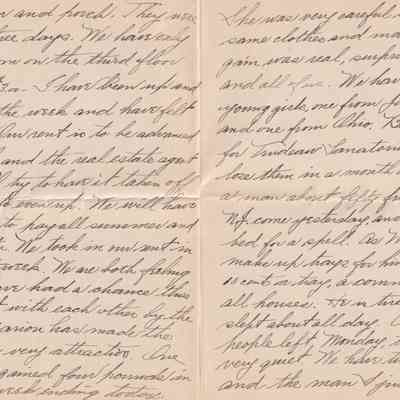 and porch. They were
three days. We have only
on the third floor
I have been up and
the week and have felt
Our rent is to be advanced
and the real estate agent
try to have it taken off
even up. We will have
to pay all summer and
We took in our rent in
week. We are both feeling
have had a chance this
with each other by the
has made the
very attractive. One
gained four pounds in
week ending today.
She was very careful
same clothes and ma
gain was real, surpri
and all of us. We hav
young girls, one from
and one from Ohio.
for Trudeau Sanatori
lose them in a month
a man about fifty fr
N.J. come yesterday, and
bed for a spell. As
make up trays for him
cent a tray, a comm
all houses. He is tire
slept about all day.
people left Monday,
very quiet. We have th
and the man I ju